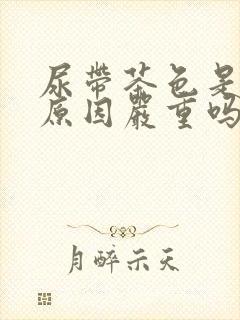 尿带茶色是
原因严重吗
月醉示天